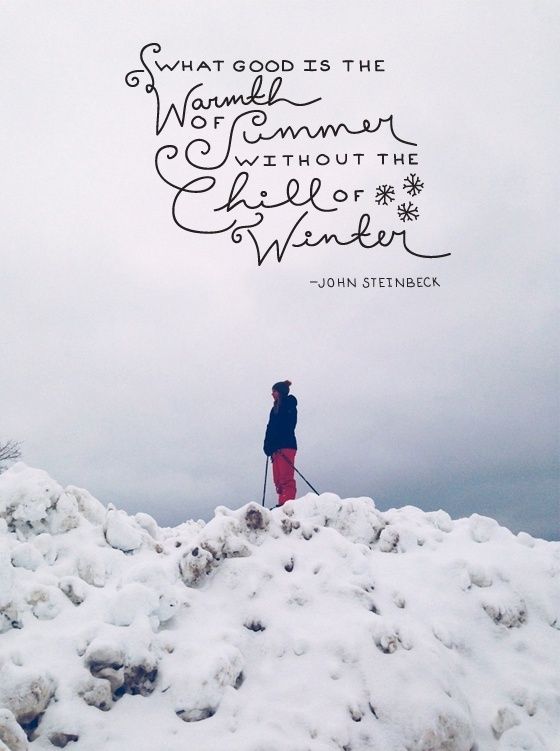 WHAT GOOD IS THE
Warmth
OF Summer
WITHOUT THE
Chill OF
Winter
—JOHN STEINBECK